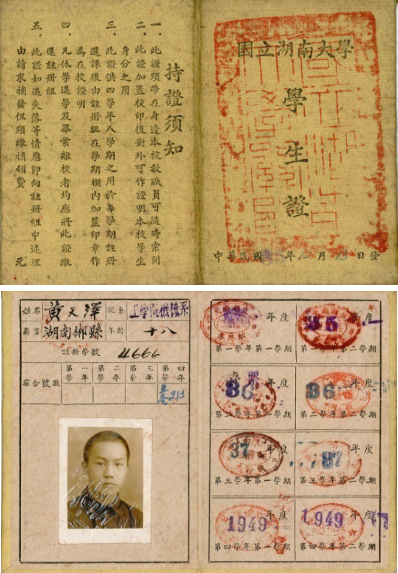 持證須知
一 此證須帶在身邊本校教職員可隨時索閱
二 此證加蓋校印後對外可作證明本校學生
身分之用
三 此證供四學年八學期之用於每學期註冊
選課後由註冊組在學期欄內加蓋印章作
為在校證明
四 凡休學退學及畢業離校者均應將此證繳
還註冊組
五 此證如遇失落等情應即向註冊組申述理
由請求補發但須繳補領費 元
國立湖南大學
學生證
中華民國 年 月 日發
姓名 黃天澤 性別
籍貫 湖南郴縣 年齡 十八
工學院機械系
註冊學號 4666
宿舍號數 第一學年 第二學年 第三學年 第四學年
213
年度
第一學年第一學期
35 年度
第一學年第二學期
36 年度
第二學年第一學期
36 年度
第二學年第二學期
37 年度
第三學年第一學期
37 年度
第三學年第二學期
1949 年度
第四學年第一學期
1949 年度
第四學年第二學期